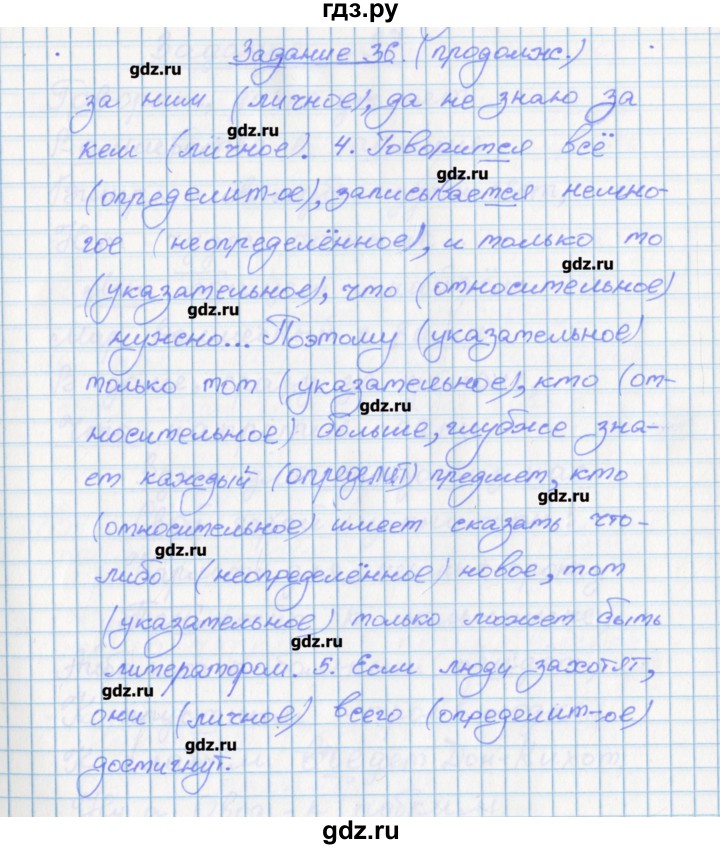 гдз.ру
Задание 36. (продолж.)
gdz.ru
за ним (личное), да не знаю за
gdz.ru
кем (личное). 4. Говорится всё
gdz.ru
(определит-ое), записывается немно-
гое (неопределённое), и только то
gdz.ru
(указательное), что (относительное)
gdz.ru
нужно... Поэтому (указательное)
только тот (указательное), кто (от-
gdz.ru
носительное) больше, глубже зна-
ет каждый (определит) предмет, кто
gdz.ru
(относительное) имеет сказать что-
gdz.ru
либо (неопределённое) новое, тот
(указательное) только может быть
gdz.ru
литератором. 5. Если люди захотят,
gdz.ru
они (личное) всего (определит-ое)
gdz.ru
достичнут.
gdz.ru